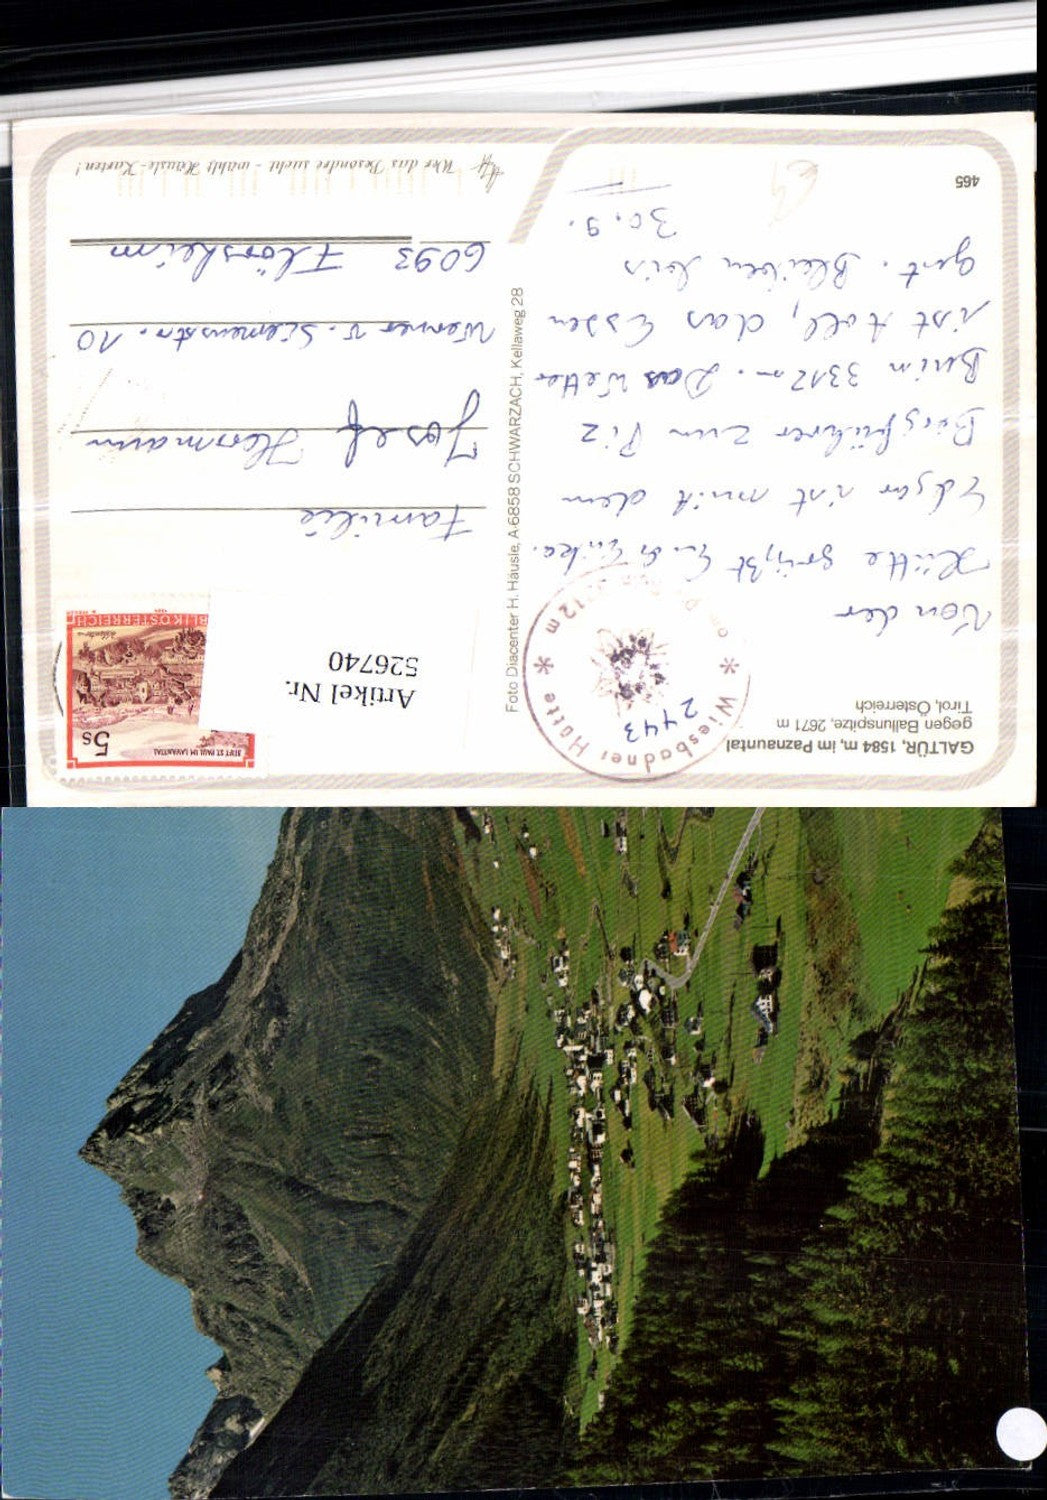 GALTÜR, 1584 m, im Paznauntal
gegen Ballunspitze, 2671 m
Tirol, Österreich
Wiesbadner Hütte
2443
Von der
Hütte grüßt
Edgar ist mit dem
Bergführer zum Piz
Buin 3312 m. Das Wetter
ist toll, das Essen
gut. Bleiben bis
30.9.
465
Foto Diacenter H. Häusle, A-6858 SCHWARZACH, Kellaweg 28
STIFT ST. PAUL IM LAVANTTAL
5s
BLIK ÖSTERREICH
Artikel Nr.
526740
Familie
Josef Hermann
Werner v. Siemensstr. 10
6093 Flörsheim
Wer das Besondre sucht - wählt Häusle-Karten!